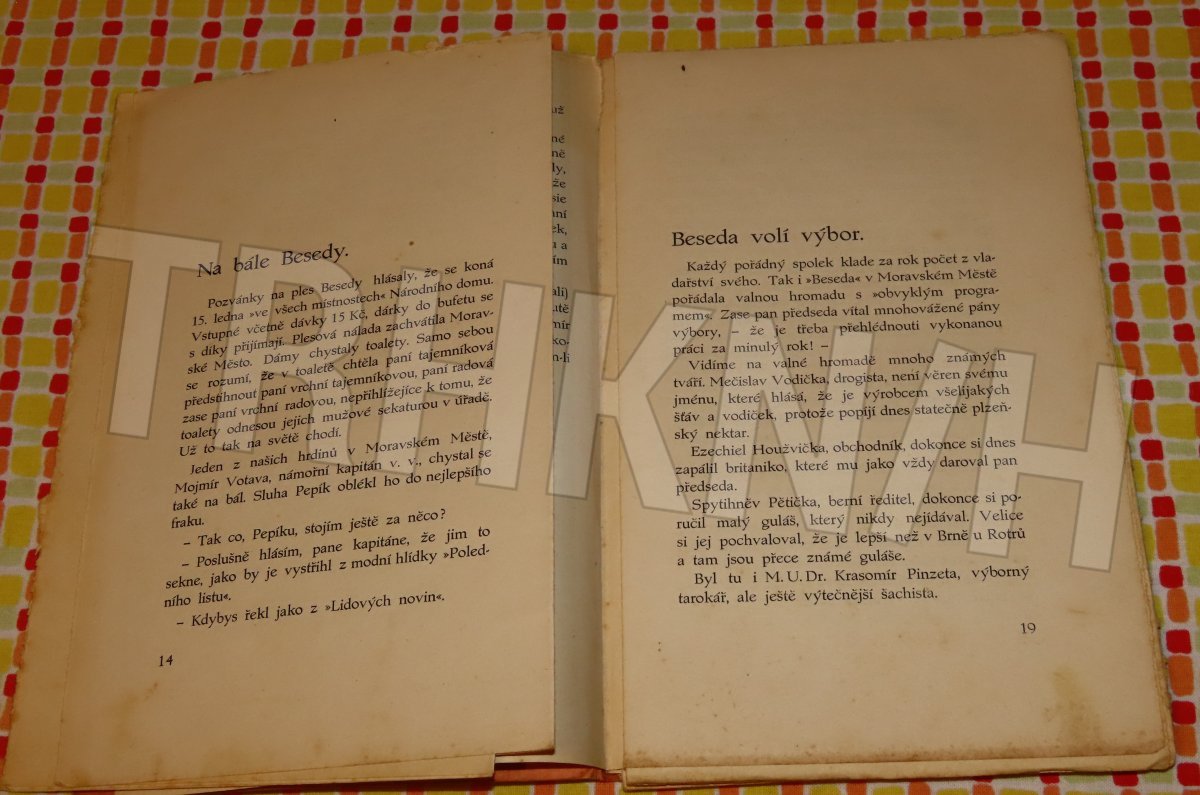 Na bále Besedy.
Pozvánky na ples Besedy hlásaly, že se koná
15. ledna »ve všech místnostech« Národního domu.
Vstupné včetně dávky 15 Kč, dárky do bufetu se
s díky přijímají. Plesová nálada zachvátila Morav-
ské Město. Dámy chystaly toalety. Samo sebou
se rozumí, že v toaletě chtěla paní tajemníková
předstihnout paní vrchní tajemníkovou, paní radová
zase paní vrchní radovou, nepřihlížejíce k tomu, že
toalety odnesou jejich mužové sekaturou v úřadě.
Už to tak na světě chodí.
Jeden z našich hrdinů v Moravském Městě,
Mojmír Votava, námořní kapitán v. v., chystal se
také na bál. Sluha Pepík oblékl ho do nejlepšího
fraku.
– Tak co, Pepíku, stojím ještě za něco?
– Poslušně hlásím, pane kapitáne, že jim to
sekne, jako by je vystřihl z modní hlídky »Poled-
ního listu«.
– Kdybys řekl jako z »Lidových novin«.
14
už
né
ně
ly,
že
sie
ní
ek,
u a
ím
ali)
utě
mír
ko-
n-li
Beseda volí výbor.
Každý pořádný spolek klade za rok počet z vla-
dařství svého. Tak i »Beseda« v Moravském Městě
pořádala valnou hromadu s »obvyklým progra-
mem«. Zase pan předseda vítal mnohovážené pány
výbory, – že je třeba přehlédnouti vykonanou
práci za minulý rok! –
Vidíme na valné hromadě mnoho známých
tváří. Mečislav Vodička, drogista, není věren svému
jménu, které hlásá, že je výrobcem všelijakých
šťáv a vodiček, protože popíjí dnes statečně plzeň-
ský nektar.
Ezechiel Houžvička, obchodník, dokonce si dnes
zapálil britaniko, které mu jako vždy daroval pan
předseda.
Spytihněv Pětička, berní ředitel, dokonce si po-
ručil malý guláš, který nikdy nejídával. Velice
si jej pochvaloval, že je lepší než v Brně u Rotrů
a tam jsou přece známé guláše.
Byl tu i M. U. Dr. Krasomír Pinzeta, výborný
tarokář, ale ještě výtečnější šachista.
19
TRHKNIH